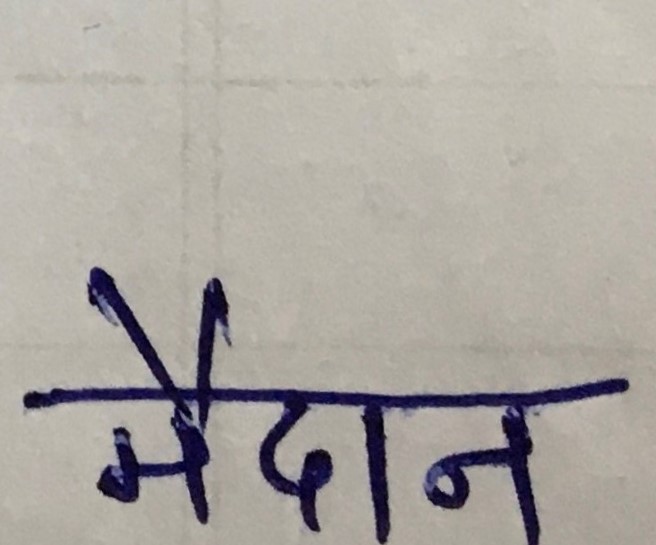 मैदान